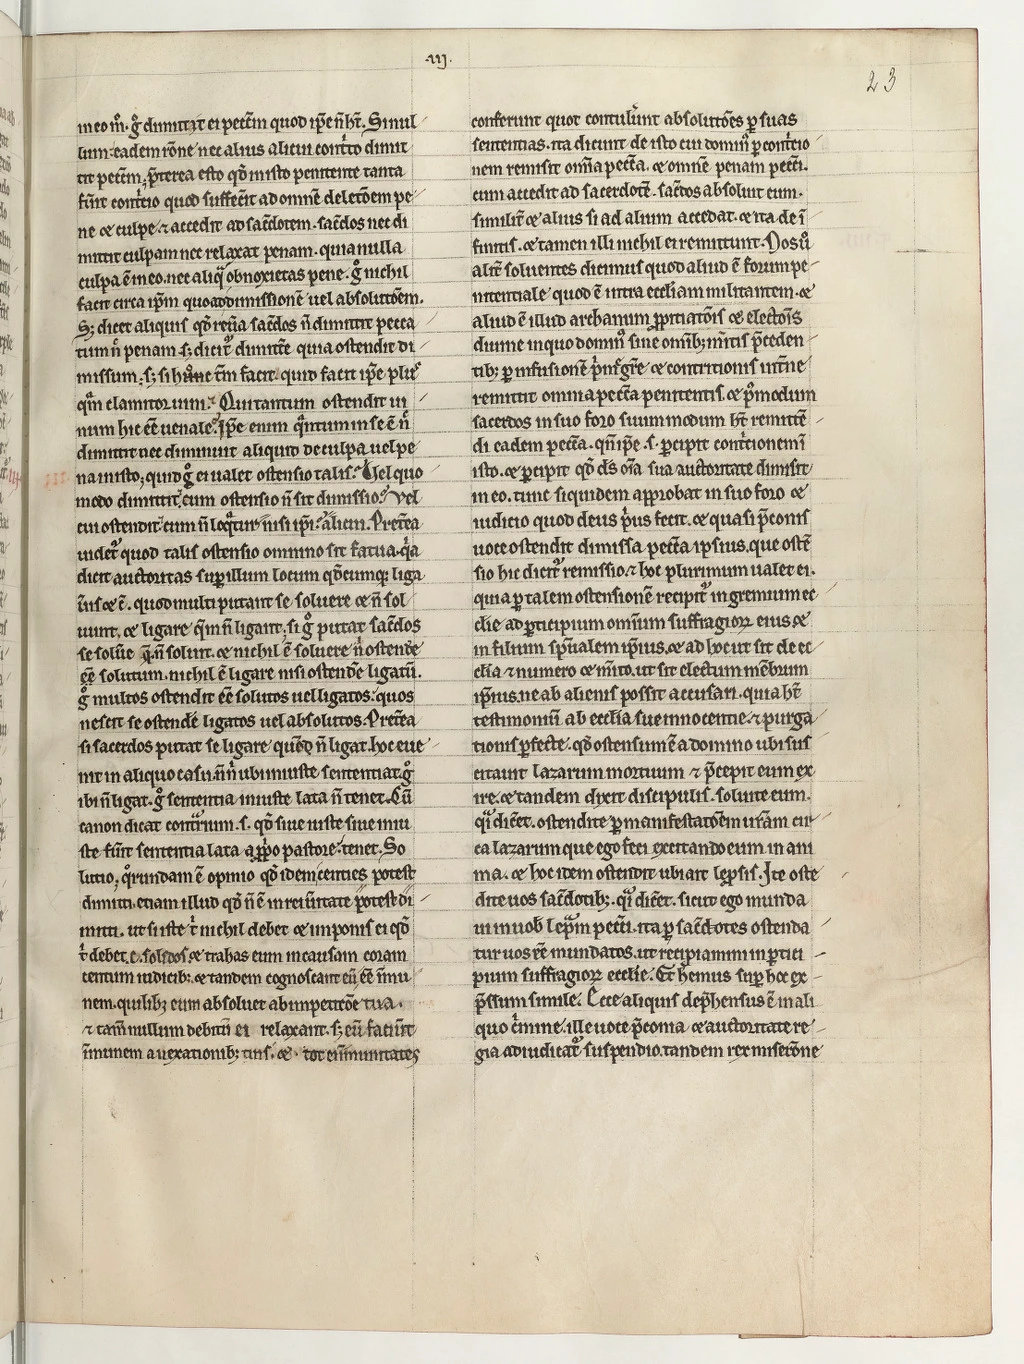 .III.
23
in eo m̃. g̃ dimittit ei pectm̃ quod ip̃e ñ hт̃. Simul
lum eadem rõne nec alius alicui contito dimit
tit pectm̃. p̃terea esto qđ in isto penitente tanta
fũit contitio quod sufficit ad omnẽ deletõem pe
ne ⁊ culpe. ⁊ accedit ad sac̃dotem. sac̃dos nec di
mittit culpam nec relaxat penam. quia nulla
culpa ẽ in eo. nec aliq̃ obnoxietas pene. g̃ nichil
facit circa ip̃m quo ad dimissionẽ uel absolutõem.
S; dicet aliquis qđ reũa sac̃dos ñ dimittit pecca
tum ñ penam. s; dicit̃ dimitt̃e quia ostendit di
missum. s; si hunc tm̃ facit. quid facit ip̃e plus
q̃m clamitor uini. Qui tantum ostendit ui
num hic ẽe uenale. ip̃e enim q̃ntum in se ẽ ñ
dimittit nec diminuit aliquid de culpa uel pe
na in isto. quid g̃ ei ualet ostensio talis. Vel quo
modo dimittit. cum ostensio ñ sit dimissio. Vel
cui ostendit. cum ñ loq̃tur nisi ip̃i. alicui. Pret̃ea
uidet̃ quod talis ostensio omnino sit fatua. q̃a
dicit auctoritas sup̃ illum locum qđcumq; liga
ũis ⁊c̃. quod multi putant se soluere ⁊ ñ sol
uunt. ⁊ ligare q̃m ñ ligant. si g̃ putat sac̃dos
se solũe q̃ ñ soluit. ⁊ nichil ẽ soluere ñ ostende
ẽe solutum. nichil ẽ ligare nisi ostendẽ ligatũ.
g̃ multos ostendit ẽe solutos uel ligatos. quos
nescit se ostendẽ ligatos uel absolutos. Pret̃ea
si sacerdos putat se ligare quẽđ ñ ligat. hoc eue
nit in aliquo casu. ñ ñ ubi iniuste sententiat. g̃
ibi ñ ligat. g̃ sententia iniuste lata ñ tenet. Cũ
canon dicat contr̃ium. s. qđ siue iuste siue iniu
ste fũit sententia lata a p̃po pastore. tenet. So
lutio. q̃rundam ẽ opinio qđ idem centies potest
dimitti. etiam illud qđ ñ ẽ in rei ũitate potest di
mitti. ut si iste t̃ nichil debet ⁊ imponis ei qđ
t̃ debet .c. solidos ⁊ trahas eum in causam coram
centum iudicib; ⁊ tandem cognoscant eũ ẽe im̃u
nem. quilib; eum absoluet ab impetitõe tua.
⁊ tam̃ nullum debitũ ei relaxant. s; eũ faciunt
im̃unem a uexationib; tuis. ⁊ tot ei im̃unitates
conferunt quot contulũnt absolutões p̃ suas
sententias. ita dicunt de isto cui domin̾ p̃ contitio
nem remisit om̃ia pecc̃a. ⁊ omnẽ penam pecc̃i.
cum accedit ad sacerdotẽ. sac̃dos absoluit eum.
similit̃ ⁊ alius si ad alium accedat. ⁊ ita de ĩ
finitis. ⁊ tamen illi nichil ei remittunt. Nos ũ
alit̃ soluentes dicimus quod aliud ẽ forum pe
nitentiale quod ẽ intra eccl̃iam militantem. ⁊
aliud ẽ illud archanum p̃pitiatõis ⁊ electõis
diuine in quo domin̾ sine om̃ib; m̃itis p̃ceden
tib; p̃ infusionẽ p̃me gr̃e ⁊ contritionis int̃ne
remittit omnia pecc̃a penitentis. ⁊ p̃ modum
sacerdos in suo foro suum modum ht̃ remittẽ
di eadem pecc̃a. qñ ip̃e .s. p̃cipit cont̃itionem ĩ
isto. ⁊ p̃cipit qđ d̃s om̃ia sua auctoritate dimisit
in eo. tunc siquidem approbat in suo foro ⁊
iudicio quod deus p̃us fecit. ⁊ quasi p̃conis
uoce ostendit dimissa pecc̃a ipsius. que ostẽ
sio hic dicit̃ remissio. ⁊ hoc plurimum ualet ei.
quia p̃ talem ostensionẽ recipit̃ in gremium ec
cl̃ie ad p̃ticipium omnium suffragioꝝ eius ⁊
in filium sp̃ualem ip̃ius. ⁊ ad hoc ut sit de ec
cl̃ia ⁊ numero ⁊ m̃ito. ut sit electum mẽbrum
ip̃ius. ne ab alienis possit accusari. quia ht̃
testimoniũ ab eccl̃ia sue innocentie ⁊ purga
tionis p̃fecte. qđ ostensum ẽ a domino ubi sus
citauit lazarum mortuum ⁊ p̃cepit eum ex
ire. ⁊ tandem dixit discipulis. soluite eum.
q̃i dic̃et. ostendite p̃ manifestatõem ur̃am cir
ca lazarum que ego feci excitando eum in ani
ma. ⁊ hoc idem ostendit ubi ait lep̃sis. Ite oste
dite uos sac̃dotib;. q̃i dic̃et. sicut ego munda
ui in uob̃ lep̃m pecc̃i. ita p̃ sac̃dotes ostenda
tur uos ẽe mundatos. ut recipiamini in p̃tici
pium suffragioꝝ eccl̃ie. Et hemus sup̃ hoc ex
p̃ssum simile. Ecce aliquis dep̃hensus ẽ in ali
quo c̃mine. ille uoce p̃conia ⁊ auctoritate re
gia adiudicat̃ suspendio. tandem rex miserõne